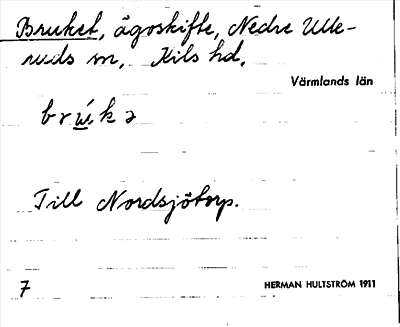 Bruket, ägoskifte, Nedre Ulle-
ruds sn, Kils hd,
Värmlands län
brú̲kə
Till Nordsjötorp.
7 HERMAN HULTSTRÖM 1911